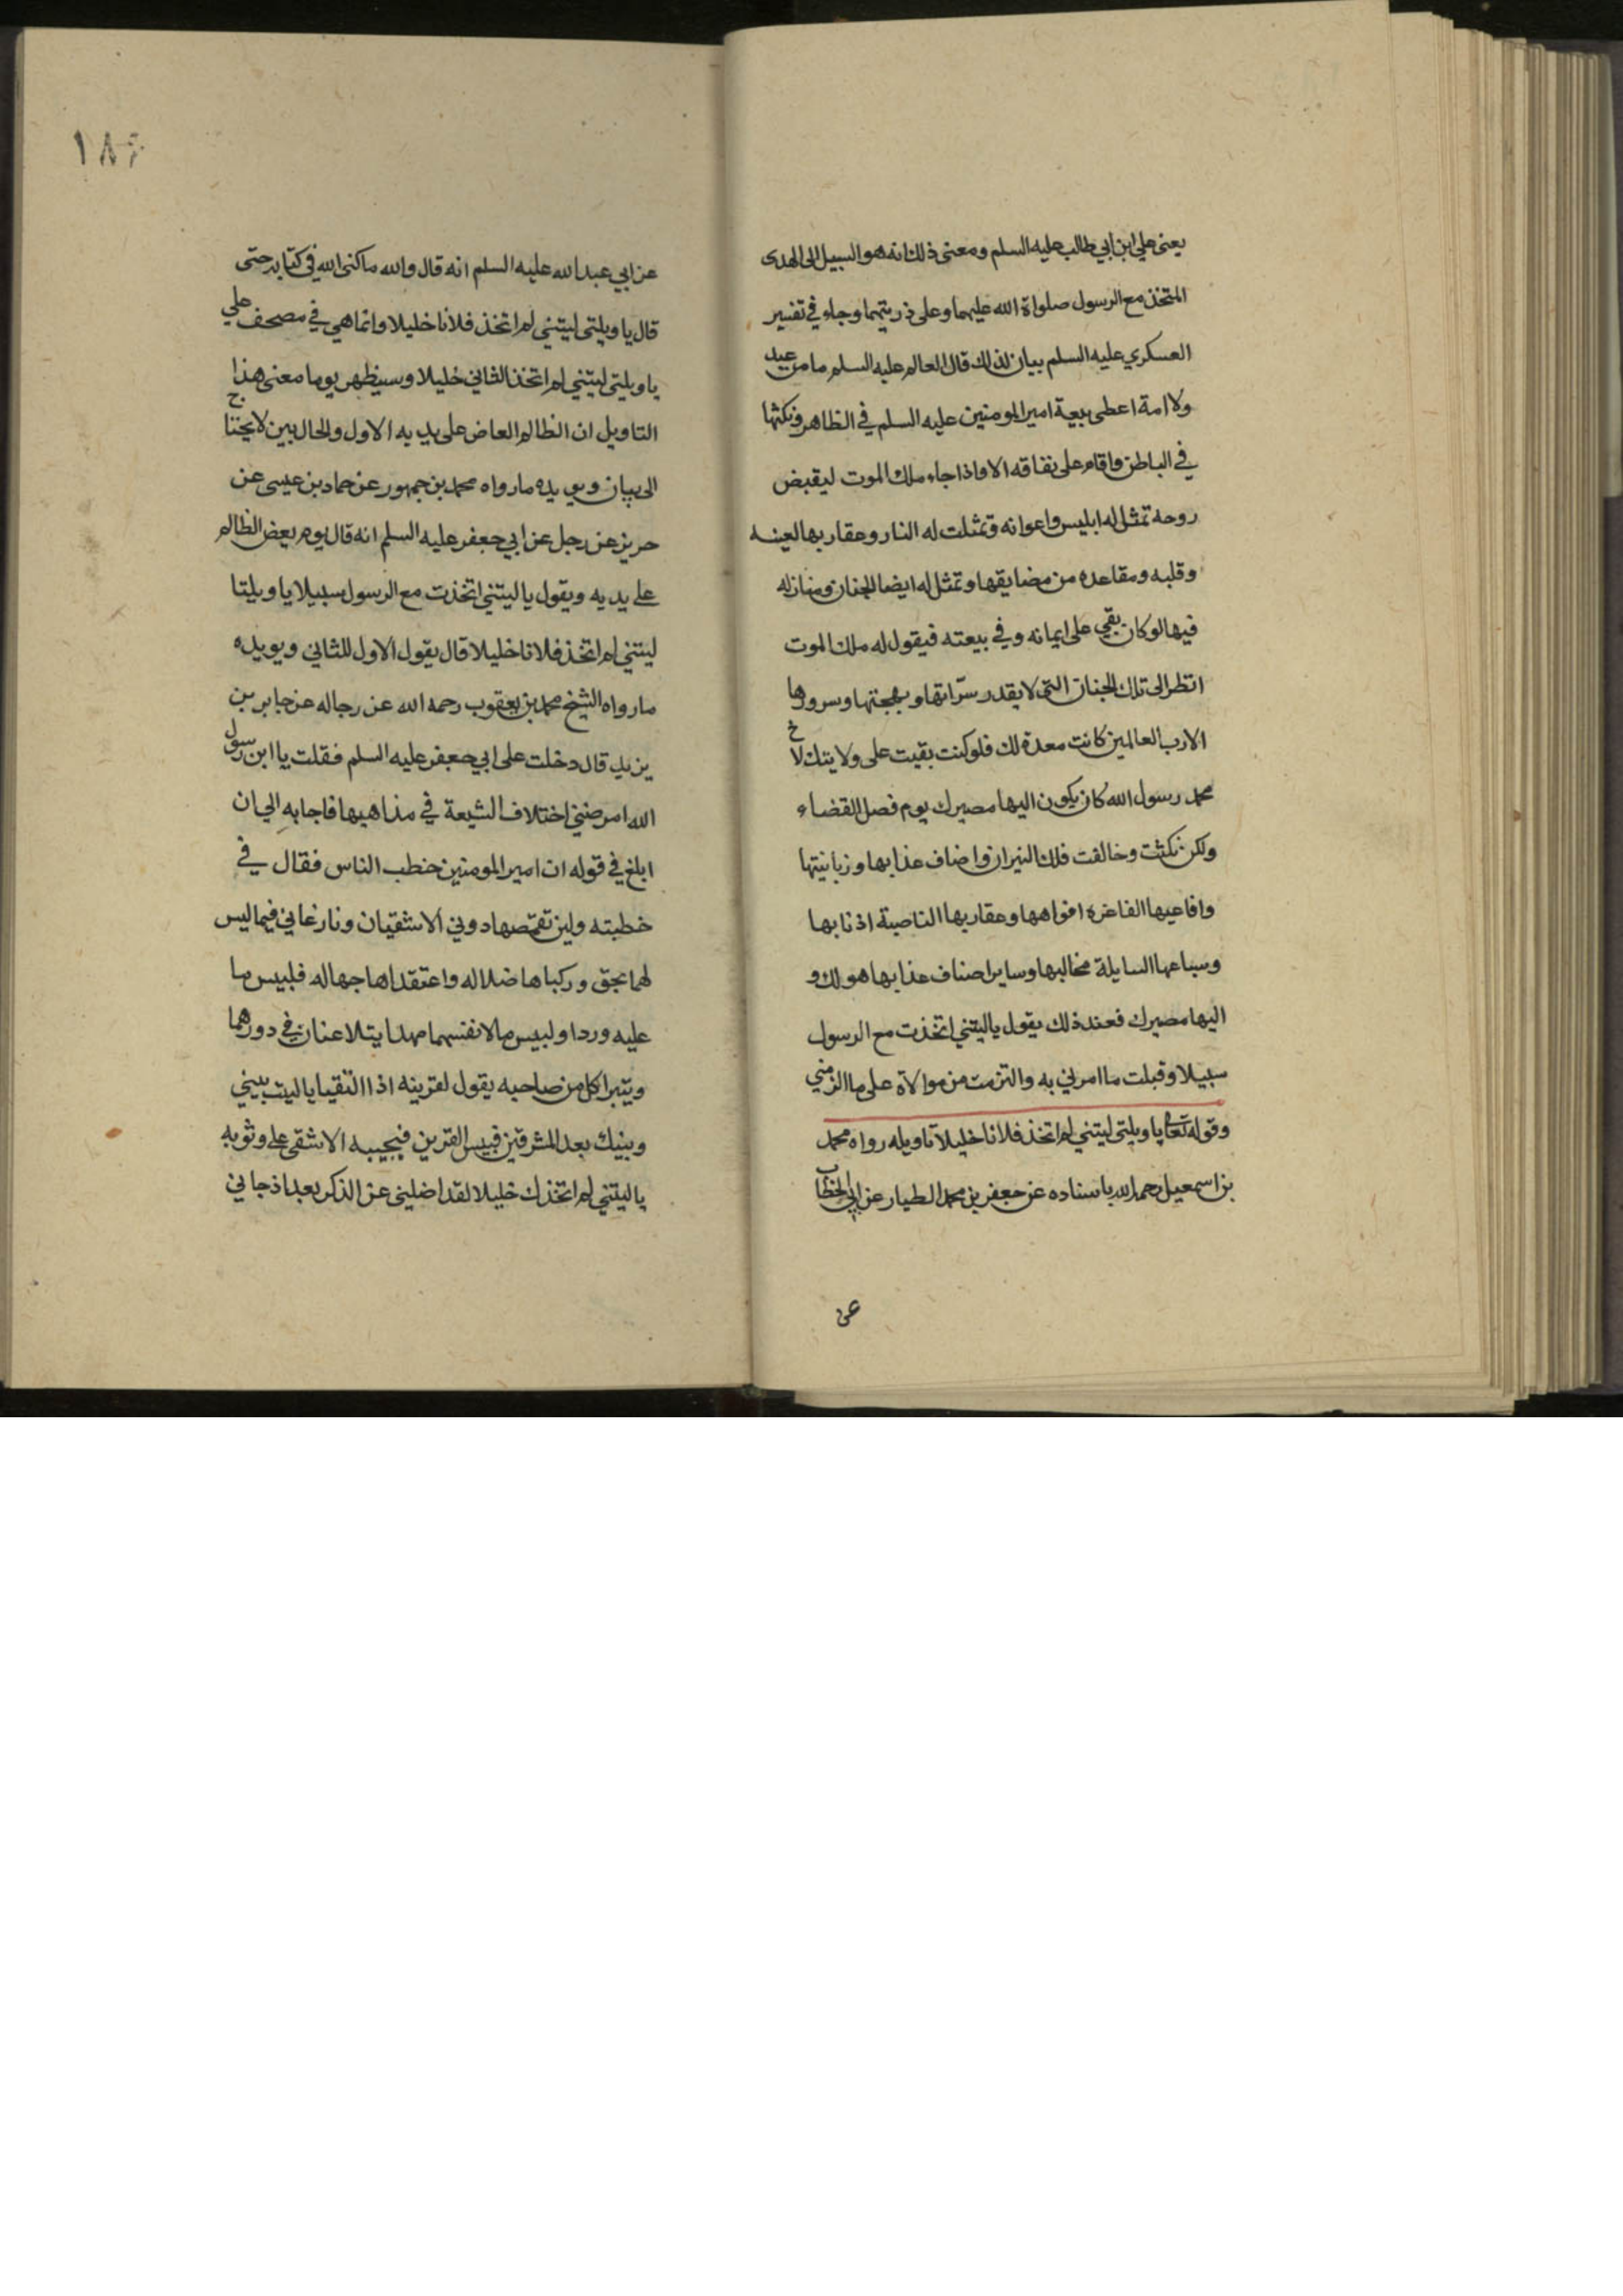 يعني علي ابن ابي طالب عليه السلم ومعنى ذلك انه هو السبيل الى الهدى
المتخذ مع الرسول صلواة الله عليهما وعلى ذريتهما وجاء في تفسير
العسكري عليه السلم بيان لذلك قال العالم عليه السلم ما من عبد
ولا امة اعطى بيعة امير المومنين عليه السلم في الظاهر ونكثها
في الباطن واقام على نفاقه الا واذا جاء ملك الموت ليقبض
روحه تمثل له ابليس واعوانه وتمثلت له النار وعقاربها لعينه
وقلبه ومقاعده من مضايقها وتمثل له ايضا الجنان ومنازله
فيها لو كان بقي على ايمانه وفي بيعته فيقول له ملك الموت
انظر الى تلك الجنان التي لا يقدر سرّاتها وبهجتها وسرورها
الا رب العالمين كانت معدة لك فلو كنت بقيت على ولايتك لاخ
محمد رسول الله كان يكون اليها مصيرك يوم فصل القضاء
ولكن نكثت وخالفت فلك النيران واضاف عذابها وزبانيتها
وافاعيها الفاغرة افواهها وعقاربها الناصبة اذنابها
وسباعها السايلة مخالبها وساير اصناف عذابها هو لك و
اليها مصيرك فعند ذلك يقول ياليتني اتخذت مع الرسول
سبيلا وقبلت ما امرني به والتزمت من موالاة على ما الزمني
وقوله تعالى يا ويلتى ليتني لم اتخذ فلانا خليلا تاويله رواه محمد
بن اسمعيل رحمه الله باسناده عن جعفر بن محمد الطيار عن ابي الخطاب
عن
١٨٦
عن ابي عبد الله عليه السلم انه قال والله ما كنى الله في كتابه حتى
قال يا ويلتى ليتني لم اتخذ فلانا خليلا وانما هي في مصحف علي
يا ويلتى ليتني لم اتخذ الثاني خليلا وسيظهر يوما معنى هذا
التاويل ان الظالم العاض على يديه الاول والحال بين لا يحتاج
الى بيان ويويده ما رواه محمد بن جمهور عن حماد بن عيسى عن
حريز عن رجل عن ابي جعفر عليه السلم انه قال يوم يعض الظالم
على يديه ويقول يا ليتني اتخذت مع الرسول سبيلا يا ويلتا
ليتني لم اتخذ فلانا خليلا قال يقول الاول للثاني ويويده
ما رواه الشيخ محمد بن يعقوب رحمه الله عن رجاله عن جابر بن
يزيد قال دخلت على ابي جعفر عليه السلم فقلت يا ابن رسول
الله امرضني اختلاف الشيعة في مذاهبها فاجابه الي ان
ابلغ في قوله ان امير المومنين خطب الناس فقال في
خطبته ولين تقمصها دوني الاشقيان ونازعاني فيما ليس
لهما بحق وركباها ضلاله واعتقداها جهاله فلبيس ما
عليه وردا ولبيس ما لانفسهما مهدا يتلاعنان في دورهما
ويتبرا كل من صاحبه يقول لقرينه اذا التقيا يا ليت بيني
وبينك بعد المشرقين فبيس القرين فيجيبه الاشقى على وثوبه
يا ليتني لم اتخذك خليلا لقد اضلني عن الذكر بعد اذ جاني